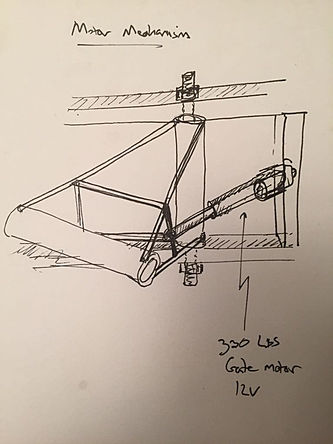 Motor Mechanism
330 LBS
Gate motor
12V